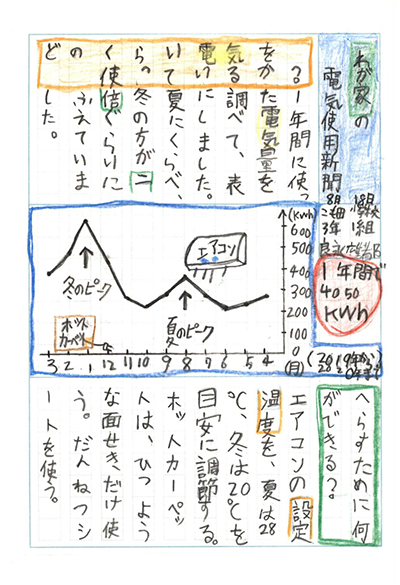 わが家の
電気使用新聞
どのくらい電気を
使っているか?
1年間に使っ
た電気量を
調べて、表
にしました。
夏にくらべ、
冬の方が二
倍ぐらいに
ふえていま
した。
1年間で
4050
KWh
(kwh)
600
500
400
300
200
100
0
(月)
エアコン
冬のピーク
夏のピーク
ホット
カーペット
3 2 1 12 11 10 9 8 7 6 5 4
へらすために何
ができる?。
エアコンの設定
温度を、夏は28
℃、冬は20℃を
目安に調節する。
ホットカーペッ
トは、ひつよう
な面せきだけ使
う。だんねつシ
ートを使う。